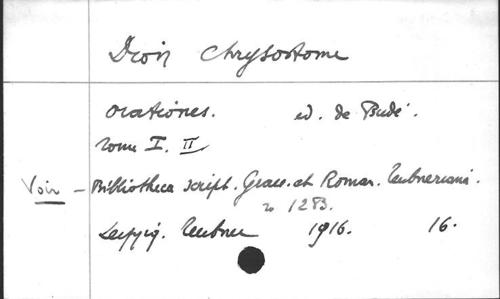 Dion Chrysostome
Orationes. ed. de Budé.
tome I. II
Voir – Bibliotheca script. Graec. et Romar. Teubneriana.
no 1283.
Leipzig. Teubner 1916. 16.